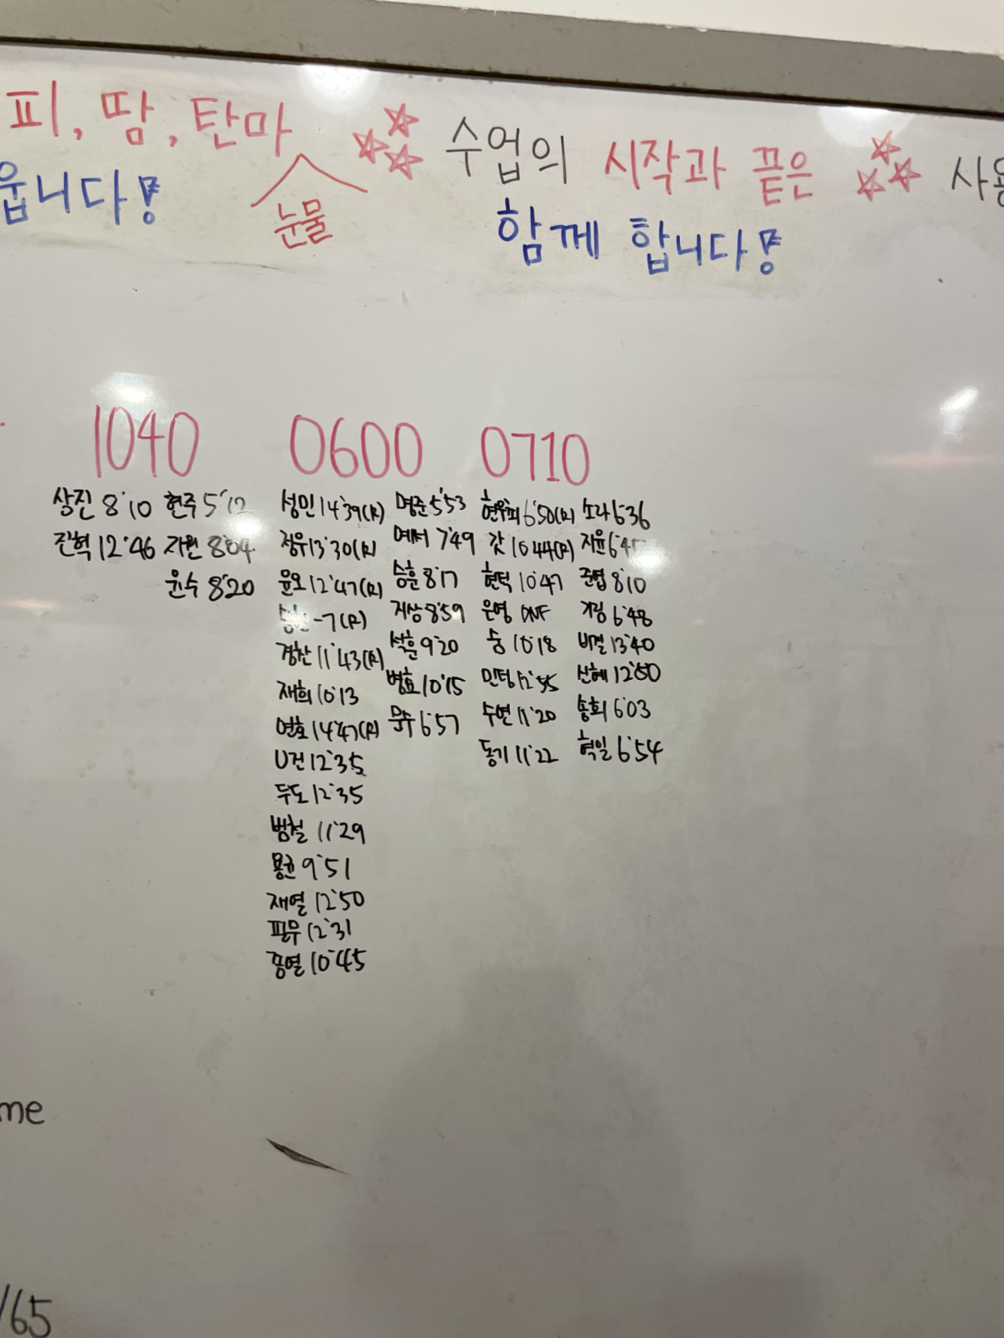 피, 땀, 탄마 수업의 시작과 끝은 사용
눈물
웁니다! 함께 합니다!
1040 0600 0710
상진 8'10 현주 5'12
진혁 12'46 지원 8'04
윤수 8'20
성민 14'39(R) 명준 5'53
정우 13'30(R) 예서 7'49
윤오 12'47(R) 승훈 8'17
-7(R) 지상 8'59
경찬 11'43(R) 석훈 9'20
재희 10'13 범호 10'15
연호 14'47(R) 문수 6'57
U건 12'35
두도 12'35
범철 11'29
용권 9'51
재열 12'50
필무 12'31
종열 10'45
현우최 6'50(R) 소라 6'36
갓 10'44(R) 지윤 6'4
현탁 10'47 준협 8'10
은영 DNF 6'48
중 10'18 13'40
12'55 신혜 12'50
수연 11'20 송희 6'03
동기 11'22 혁일 6'54
me
/65